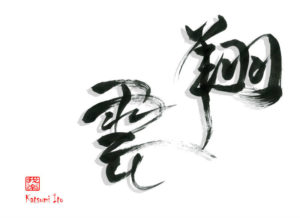 翔
雲
Katsumi Ito